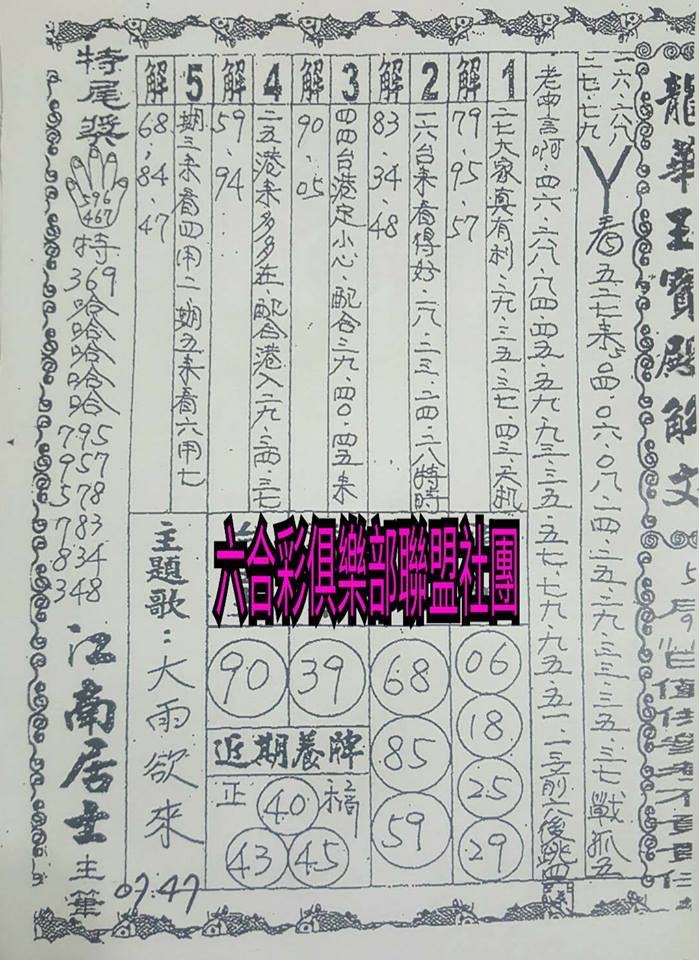 龍華王寶殿解文
5月9日僅供參考
一六.六八
二七.七九
丫看⑤五二七來.0四.0六.0八.二四.二五.二九.三三.三五.三七戰孤五
老曲言啊.四六.二八.八四.四五.五九.九三.三五.五七.七九.九五.五一.一三前六後跳四
1
二七大家真有利.二九.三五.三七.四三.天机
解
79.95.57
2
二六台來看得好.二八.二三.二四.二八特時
解
83.34.48
3
四四台港足小心.配合三九.四0.四五來
解
90.05
4
二五港來多多在.配合港入二九.二四.三七
解
59.94
5
期三來看四用二期五來看六用七
解
68.84.47
特尾獎
596
467
特
369
哈哈哈哈
哈哈哈哈
795
957
578
783
834
348
江南居士主筆
07:47
主題歌：大雨欲來
六合彩俱樂部聯盟社團
90
39
近期養牌
正
福
40
43
45
68
85
59
06
18
25
29